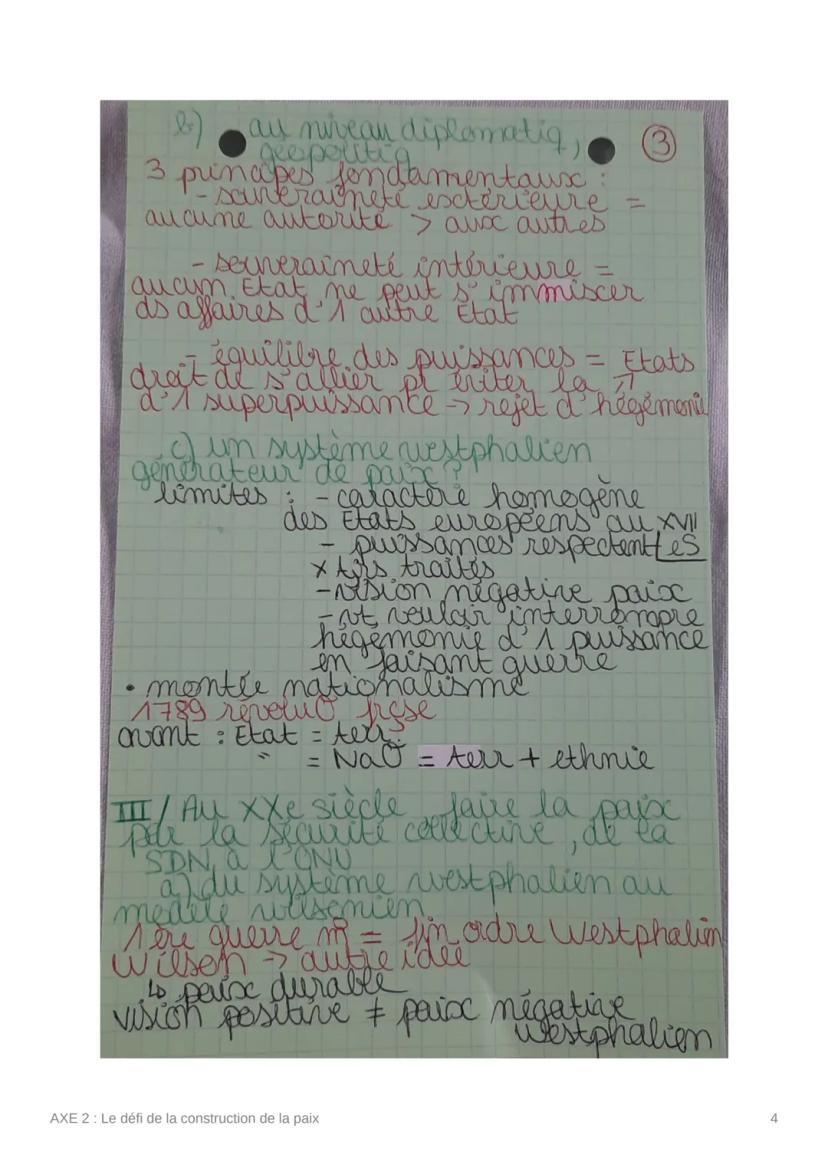 b) au niveau diplomatiq,
géopolitiq
③
3 principes fondamentaux :
- souveraineté extérieure =
aucune autorité > aux autres
- souveraineté intérieure =
aucun Etat ne peut s'immiscer
ds affaires d'1 autre Etat
- équilibre des puissances = Etats
droit de s'allier pr éviter la ↗
d'1 superpuissance → rejet d'hégémonie
c) un système westphalien
générateur de paix ?
limites : - caractère homogène
des Etats européens au XVII
- puissances respectent les
x tjrs traités
- vision négative paix
- vt vouloir interrompre
hégémonie d'1 puissance
en faisant guerre
• montée nationalisme
1789 révoluO frçse
avant : Etat = terr.
" = NaO = terr + ethnie
III/ Au XXe siècle faire la paix
par la sécurité collective, de la
SDN à l'ONU
a) du système westphalien au
modèle wilsonien
1ère guerre m = fin ordre Westphalien
Wilson → autre idée
↳ paix durable
vision positive ≠ paix négative
westphalien
AXE 2 : Le défi de la construction de la paix
4